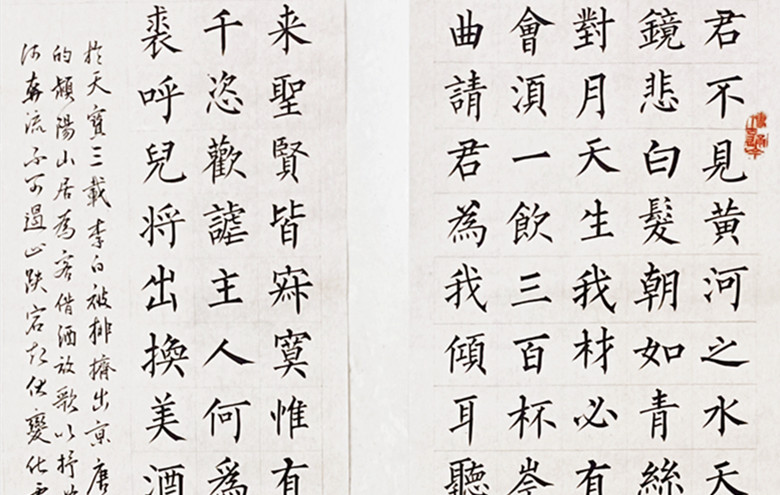 君不見黃河之水天
鏡悲白髮朝如青絲
對月天生我材必有
會湏一飲三百杯岑
曲請君為我傾耳聽
来聖賢皆寂寞惟有
千恣歡謔主人何爲
裘呼兒将出換美酒
於天寶三載李白被排擠出京唐
的頴陽山居為客借酒放歌以抒
河奔流不可遏止跌宕起伏變化